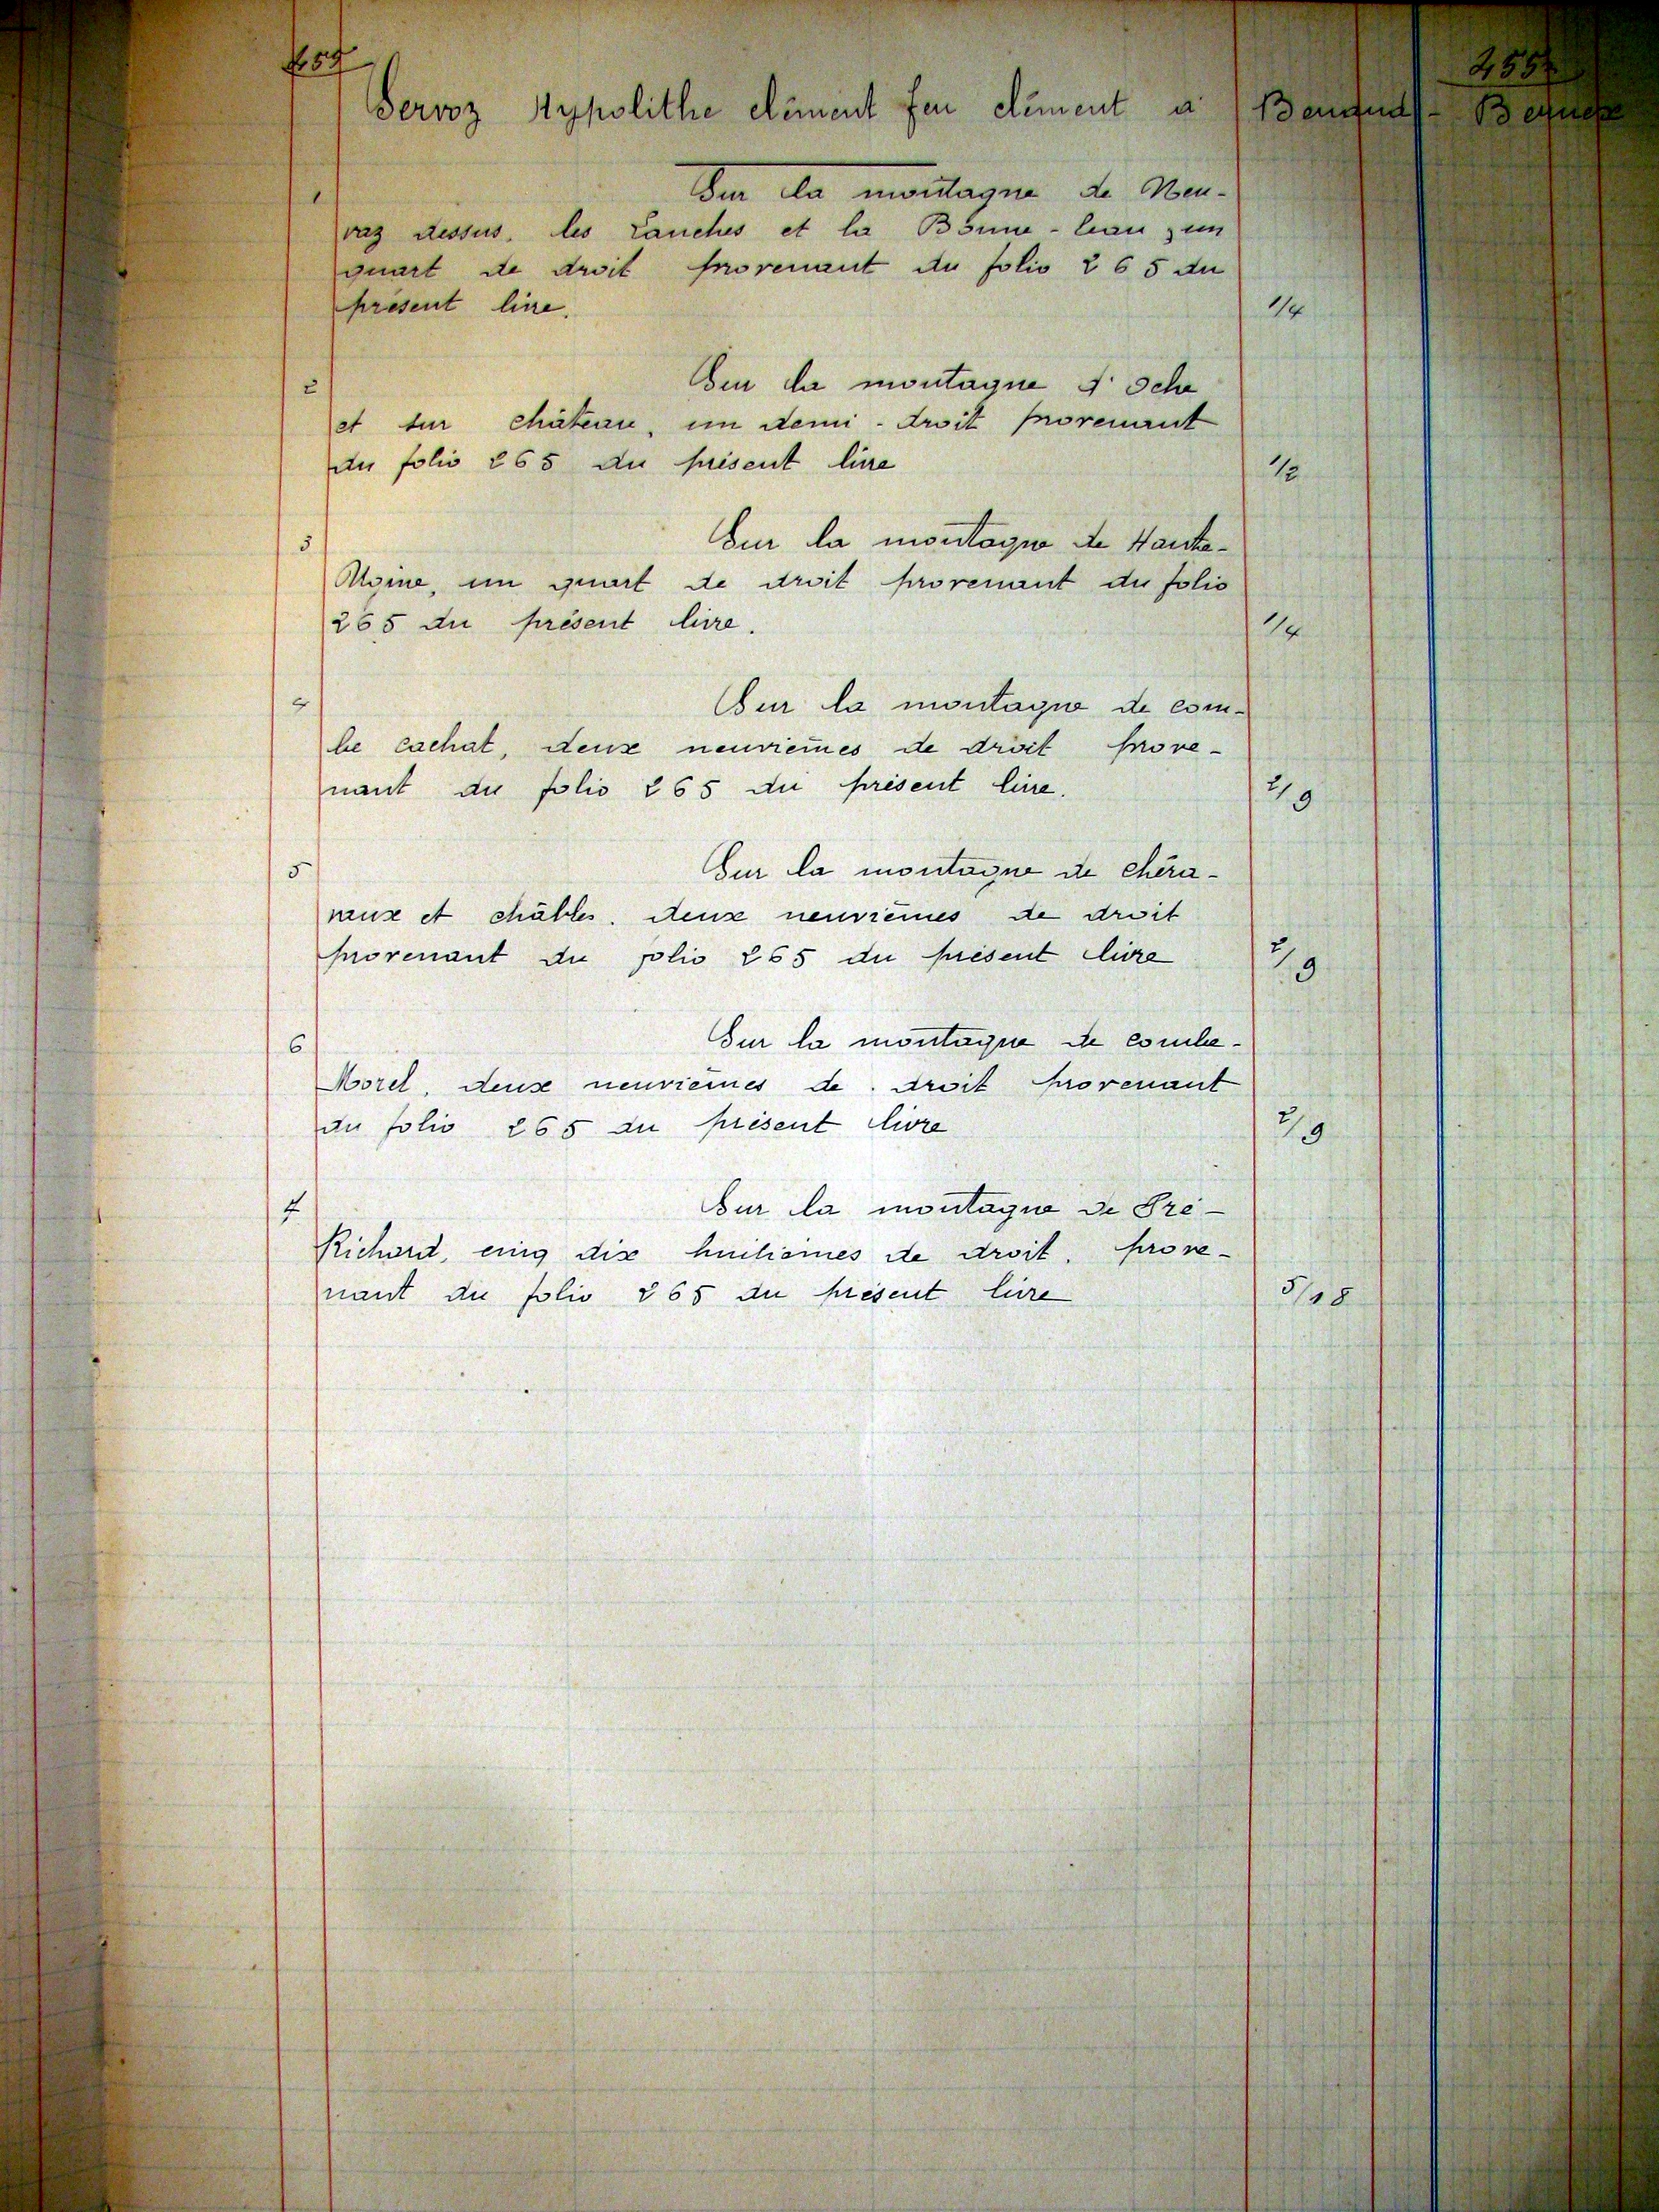 Servoz Hypolithe clément feu clément à
1 Sur la montagne de Neu-
vaz dessus, les Lanches et la Bonne-leau, un
quart de droit provenant du folio 265 du
présent livre. 1/4
2 Sur la montagne d'Oche
et sur château, un demi-droit provenant
du folio 265 du présent livre 1/2
3 Sur la montagne de Haute-
un quart de droit provenant du folio
265 du présent livre. 1/4
4 Sur la montagne de com-
be cachat, deux neuvièmes de droit prove-
nant du folio 265 du présent livre. 2/9
5 Sur la montagne de chéra-
vaux et châbles. deux neuvièmes de droit
provenant du folio 265 du présent livre 2/9
6 Sur la montagne de combe-
Morel, deux neuvièmes de droit provenant
du folio 265 du présent livre 2/9
7 Sur la montagne de Pré-
Richard, cinq dix huitièmes de droit. prove-
nant du folio 265 du présent livre 5/18